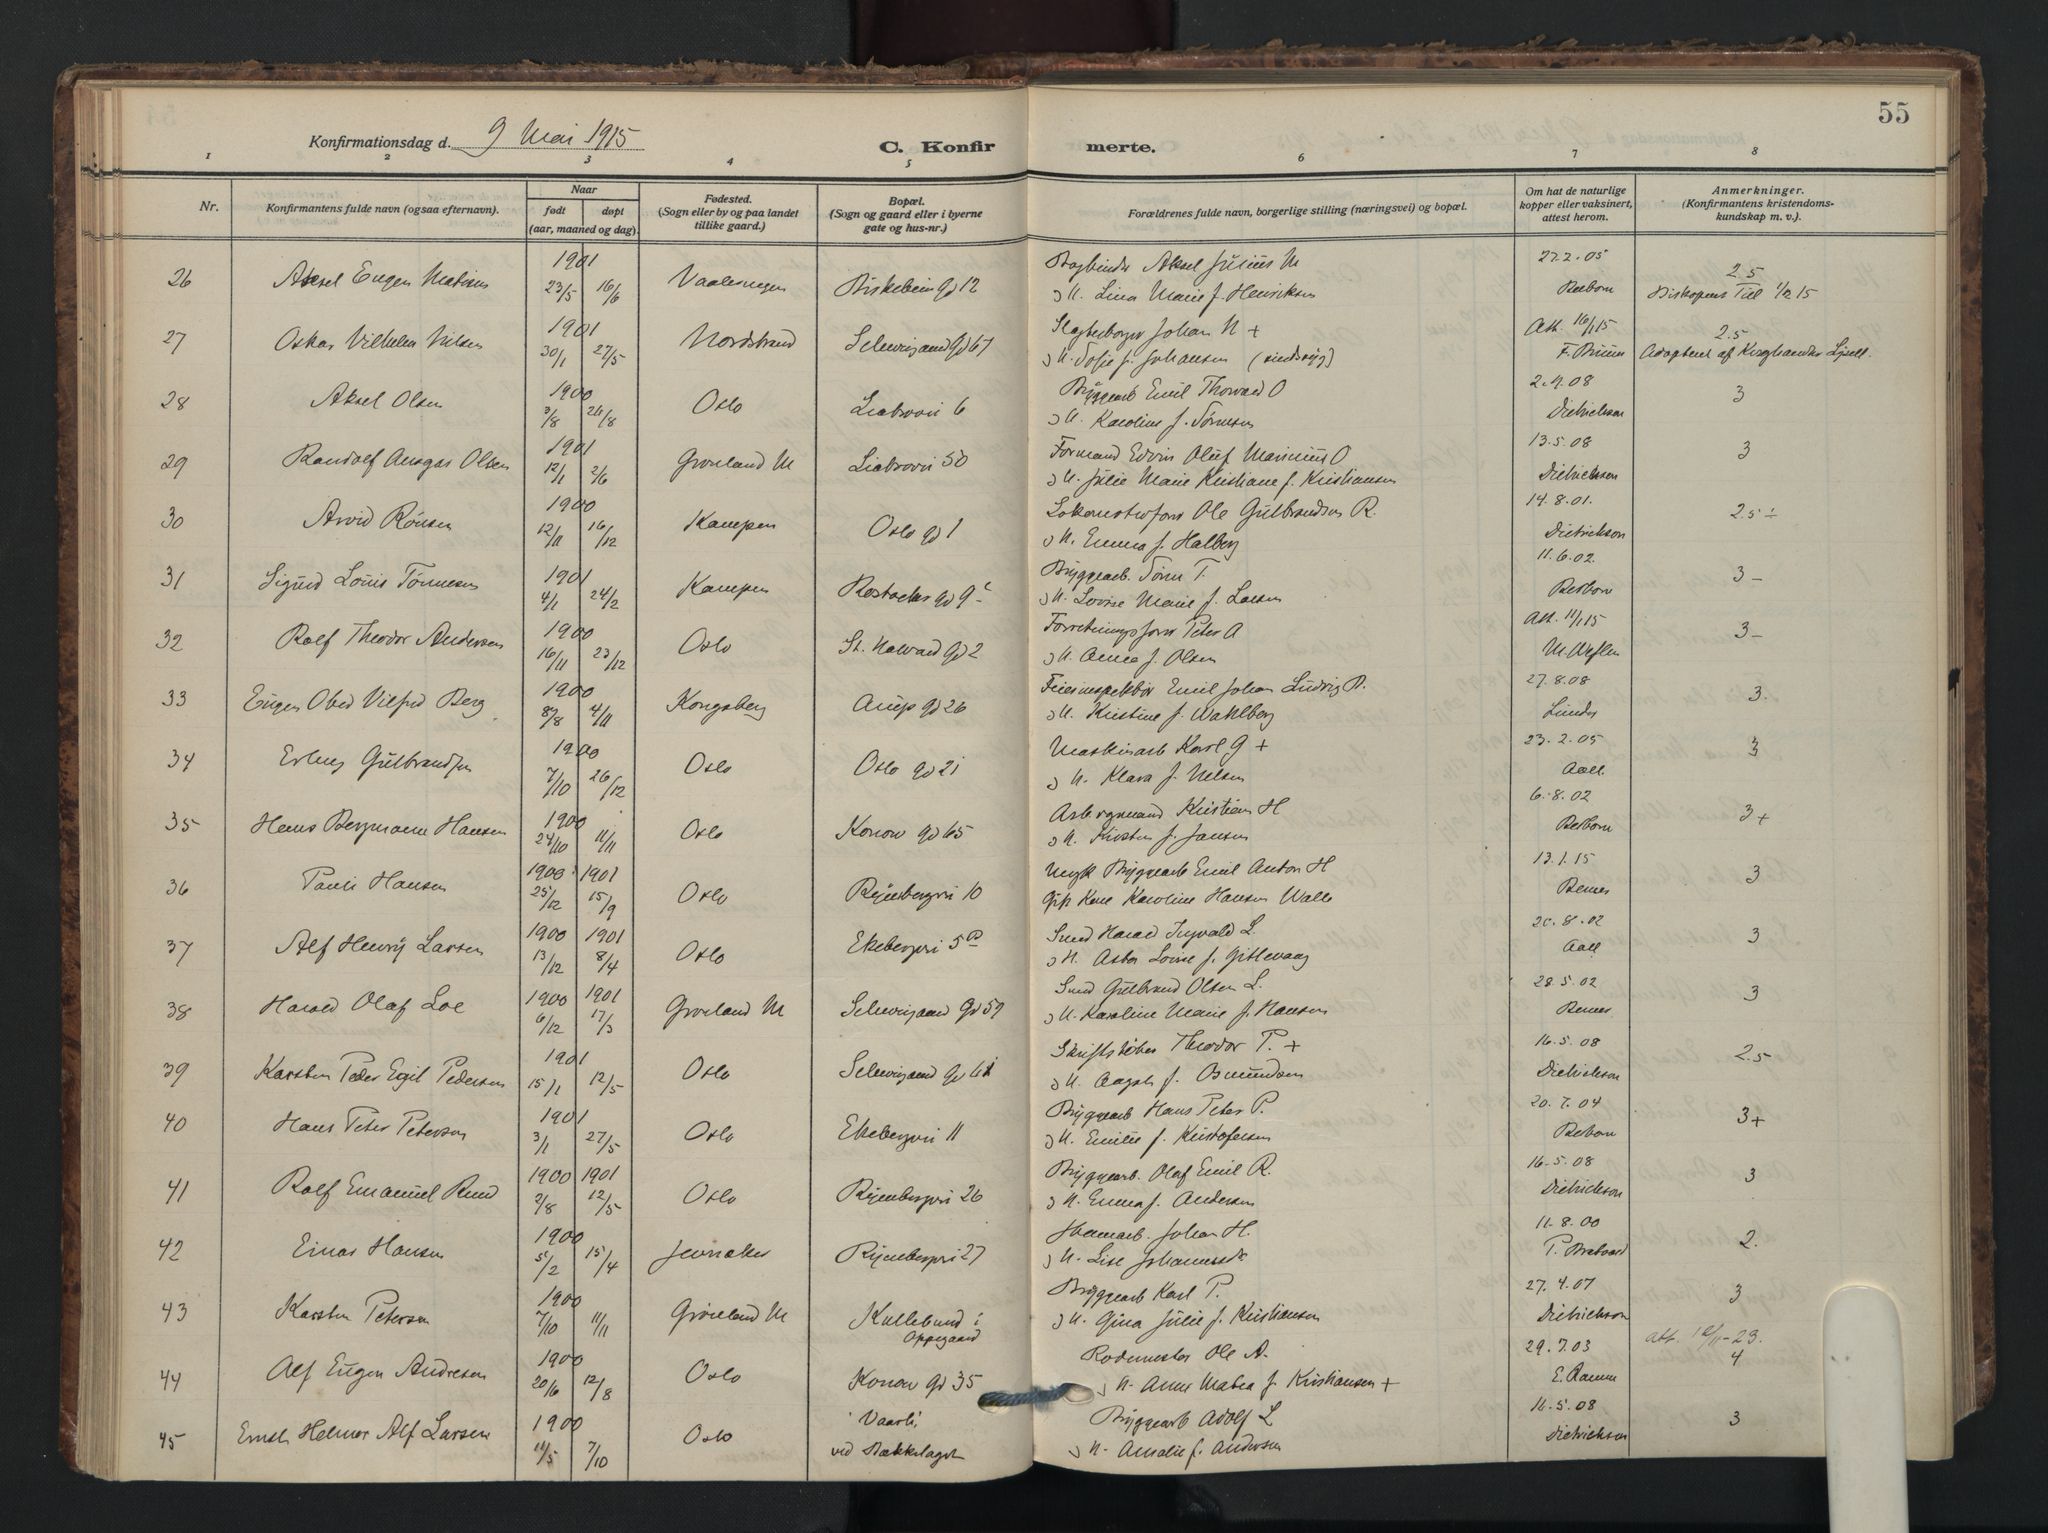 55
Konfirmationsdag d. 9 Mai 1915
C. Konfirmerte.
1 2 3 4 5 6 7 8
Nr.
Konfirmantens fulde navn (ogsaa efternavn).
Naar
født døpt
(aar, maaned og dag).
Fødested.
(Sogn eller by og paa landet
tillike gaard.)
Bopæl.
(Sogn og gaard eller i byerne
gate og hus-nr.)
Forældrenes fulde navn, borgerlige stilling (næringsvei) og bopæl.
Om hat de naturlige
kopper eller vaksinert,
attest herom.
Anmerkninger.
(Konfirmantens kristendoms-
kundskap m. v.).
26 Aksel Eugen 1901 23/5 16/6 Vaalerengen Birkebein gd 12
Bogbinder Aksel Julius M 27.2.05 2.5
o H. Lina Marie f. Henriksen Berbom Biskopens Till 1/2 15
27 Oskar Vilhelm Nilsen 1901 30/1 27/5 Nordstrand Schweigaard gd 67
Johan N + Att. 16/1 15 2.5
o H. Sofie f. Johansen F. Bruun
28 Aksel Olsen 1900 3/8 26/8 Oslo Liabrovei 6
Bryggearb Emil Thorvald O 2.4.08 3
o H. Karoline f. Tørnesen Dietrichson
29 Randolf Ansgar Olsen 1901 12/1 2/6 Grønland M Liabrovei 50
Formand Edvin Oluf Marinius O 13.5.08 3
o H. Julie Marie Kristiane f. Kristiansen Dietrichson
30 Arvid Rønsen 1900 12/11 16/12 Kampen Oslo gd 1
Lokomotivfører Ole Gulbrandsen R. 14.8.01. 2.5 ÷
o H. Emma f. Halberg Dietrichson
31 Sigurd Louis Tønnesen 1901 4/1 24/2 Kampen Rostocks gd 9
Bryggearb. Sørn T. 11.6.02. 3-
o H. Lovise Marie f. Larsen Berbom
32 Rolf Theodor Andersen 1900 16/11 23/12 Oslo St. Halvard gd 2
Forretningsfører Peter A Att. 11/1 15 3-
o H. Anna f. Olsen
33 Eugen Obed Vilfred Berg 1900 8/8 4/11 Kongsberg Arups gd 26
Feierinspektør Emil Johan Ludvig B. 27.8.08 3.
o H. Kristine f. Wahlberg Lunder
34 Erling Gulbrandsen 1900 7/10 26/12 Oslo Oslo gd 21
Maskinarb Karl G + 23.2.05 3
o H. Klara f. Nilsen Aall.
35 Hans Bergmann Hansen 1900 24/10 11/11 Oslo Konow gd 65
Kristian H 6.8.02 3+
o H. Kirsten f. Jansen Berbom
36 Pauli Hansen 1900 1901 25/12 15/9 Oslo Ryenbergvei 10
Ungk Bryggearb Emil Anton H 13.1.15 3
Karoline Hansen Walle Berner
37 Alf Henry Larsen 1900 1901 13/12 8/4 Oslo Ekebergvei 5
Smed Harald Ingvald L. 20.8.02 3
o H. Lovise f. Gitlevang Aall
38 Harald Olaf Loe 1900 1901 6/12 17/3 Grønland M Schweigaard Gd 59
Smed Gulbrand Olsen L. 28.5.02 3
o H. Karoline Marie f. Hansen Berner.
39 Karsten Peder Egil Pedersen 1901 15/1 12/5 Oslo Schweigaard gd 61
Skriftstøber Theodor P. + 16.5.08 2.5
o H. Aagot f. Osmundsen Dietrichson
40 Hans Peter Petersen 1901 3/1 27/5 Oslo Ekebergvei 11
Bryggearb Hans Peter P. 20.7.04 3+
o H. Emilie f. Kristofersen Berbom
41 Rolf Emanuel Ruud 1900 1901 2/8 12/5 Oslo Ryenbergvei 26
Bryggearb. Olaf Emil R. 16.5.08 3
o H. Emma f. Andersen Dietrichson
42 Einar Hansen 1900 5/2 15/4 Jevnaker Ryenbergvei 27
Johan H. 11.8.00 2.
o H. Lise Johannesd.
43 Karsten Petersen 1900 7/10 11/11 Grønland M Kullebund i
Oppegaard
Bryggearb Karl P. 27.4.07 3
o H. Gina Julie f. Kristiansen Dietrichson
44 Alf Eugen Andresen 1900 20/6 12/8 Oslo Konow gd 35
Rodemester Ole A. 29.7.03 att. 12/11-23. 4
o H. Anne Mathea f. Kristiansen + E. Ramm
45 Ernst Helmer Alf Larsen 1900 11/5 7/10 Oslo Vaarli
ved Bækkelaget
Bryggearb Adolf L 11.5.08 3
o H. Amalie f. Andersen Dietrichson